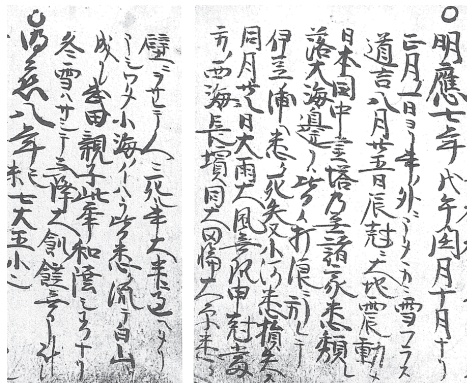 〇明應七年 戊午 閏月十月ナリ
正月一日ヨリ雪フラス
道吉八月廿五日辰尅ニ大地震動シテ
日本國中堂塔乃至諸家悉頽レ
落大海邊リハ皆々打浪ニ引レテ
伊豆浦ヘ悉ク死失又小河悉損失ス
同月廿八日大雨大風無限申尅當
方ノ西海長濱同大田輪大原悉ク
壁ニヲサレテ人々死ル事大半ニ過タリ
小海イハウ皆悉流テ白山ト
成ル 武田親子此年和談シ玉ナリ
冬雪ハサノミ不降人飢饉無申計
〇明應八年 己未 七大五小